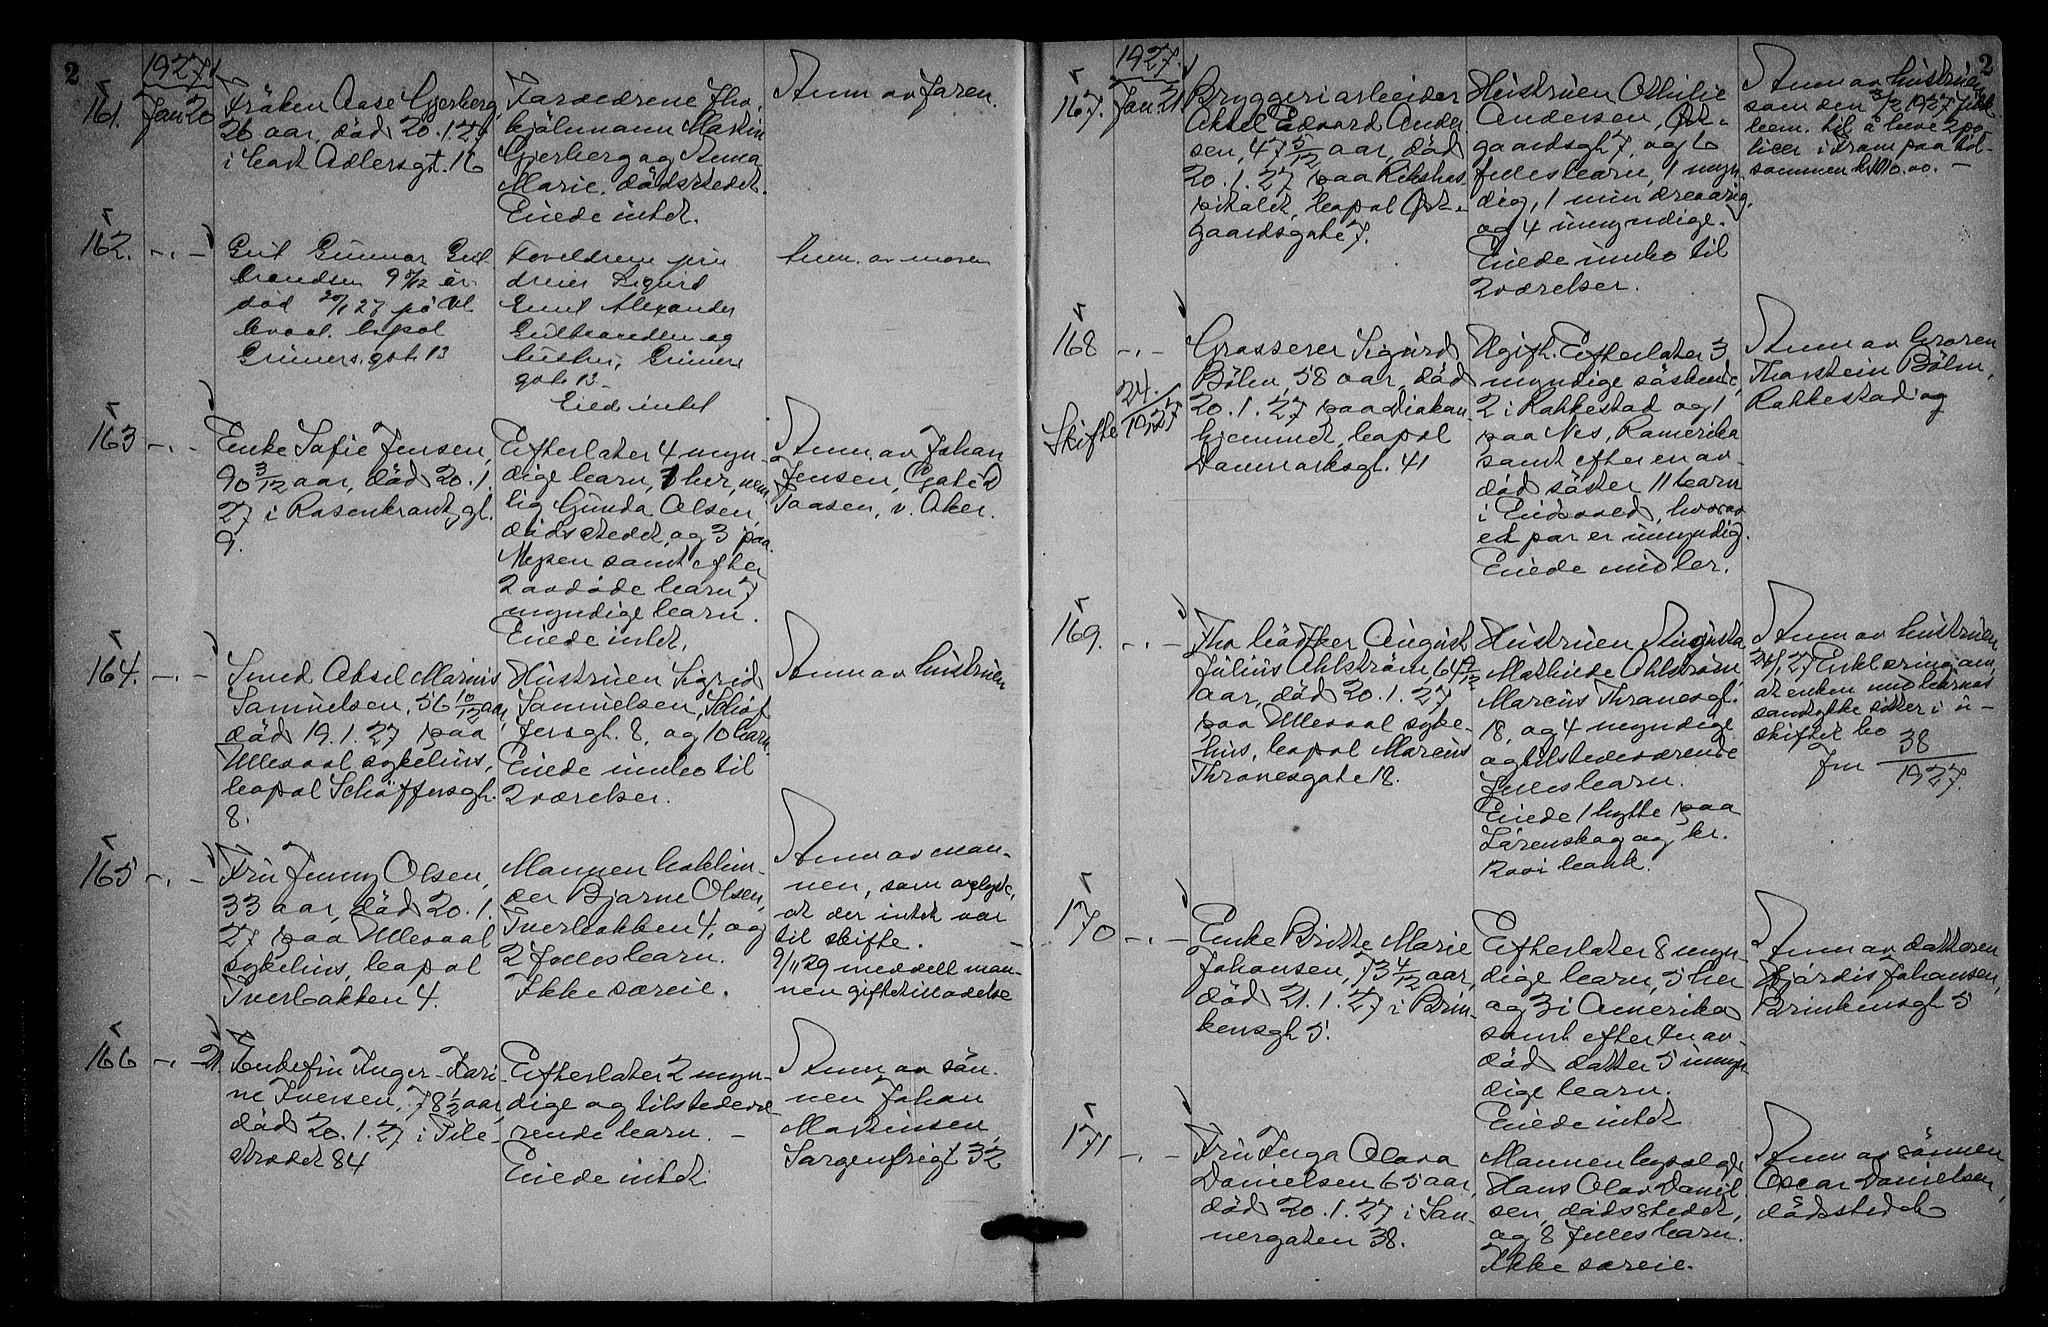 2
1927
161. Jan 20
Frøken Aase Gjerberg,
26 aar, død 20.1.27
i Cort Adlersgt. 16
Forældrene fho.
kjølmann Martin
Gjerberg og Anna
Marie, dødsstedet.
Eiede intet.
Anm. av faren.
162. -.-
Gut Gunnar Gul
brandsen 9 år
død 20/1 27 på Ul
levaal. bopæl
Grüners. gat. 13
Foreldrene
Sigurd
Emil Alexander
Gulbrandsen og
hustru, Grüners
gate 13.-
Eied intet
Anm. av moren
163 -.-
Enke Sofie Jensen,
90 3/12 aar, død 20.1.
27 i Rosenkrantzgt.
9.
Efterlater 4 myn-
dige barn, 1 her, nem
lig Gunda Olsen,
dødsstedet, og 3 paa
Mysen samt efter
2 avdøde barn 7
myndige barn.
Eiede intet.
Anm. av Johan
Jensen,
Taasen, v. Aker.
164. -.-
Smed Aksel Marius
Samuelsen, 56 10/12 aar,
død 19.1.27 paa
Ullevaal sykehus,
bopæl Schøffersgt.
8.
Hustruen Sigrid
Samuelsen, Schøf
fersgt. 8, og 10 barn.
Eiede innbo til
2 værelser.
Anm av hustruen
165 -.-
Fru Jenny Olsen,
33 aar, død 20.1.
27 paa Ullevaal
sykehus, bopæl
Tverbakken 4.
Mannen bokbin-
der Bjarne Olsen,
Tverbakken 4, og
2 fællesbarn.
Ikke særeie.
Anm av man-
nen, som oplyste,
at der intet var
til skifte. -
9/11 29 meddelt man-
nen giftetilladelse
166 -.- 21.
Enkefru Inger-Kari-
ne Iversen, 78 1/2 aar,
død 20.1.27 i Pile-
stredet 84
Efterlater 2 myn-
dige og tilstedevæ
rende barn. -
Eiede intet
Anm av søn-
nen Johan
Martinsen,
Sorgenfrigt 32
2
1927.
167. Jan. 21
Bryggeriarbeider
Aksel Edvard Ander
sen, 47 5/12 aar, død
20.1.27 paa Rikshos
pitalet, bopæl Øst-
gaardsgate 7.
Hustruen Othilie
Andersen, Øst-
gaardsgt. 7, og 6
fællesbarn, 1 myn
dig, 1 mindreaarig,
og 4 umyndige.
Eiede innbo til
2 værelser.
Anm av hustruen
som den 3/2 1927 fikk
bem. til å heve 2 po-
licer i Fram paa til-
sammen
168 -.-
Skifte 24./1927
Grosserer Sigurd
Bøhn, 58 aar, død
20.1.27 paa Diakon
hjemmet, bopæl
Danmarksgt. 41
Ugift. Efterlater 3
myndige søskende,
2 i Rakkestad og 1
paa Nes, Romerike
samt efter en av-
død søster 11 barn
i Eidsvold, hvorav
et par er umyndig.
Eiede midler.
Anm av broren
Thorstein Bøhn,
Rakkestad og
169. -.-
August
Julius Ahlstrøm, 64 9/12
aar, død 20.1.27
paa Ullevaal syke-
hus, bopæl Marcus
Thranesgate 18.
Hustruen Augusta
Mathilde Ahlstrøm,
Marcus Thranesgt.
18, og 4 myndige
og tilstedeværende
fællesbarn.
Eiede 1 hytte paa
Lørenskog og kr.
i bank.
Anm av hustruen
Erklæring om,
at enken med barnas
samtykke sitter i u-
skiftet bo
Jnr 38/1927.
170 -.-
Enke Britte Marie
Johansen, 73 4/12 aar,
død 21.1.27 i Brin-
kensgt 5.
Efterlater 8 myn-
dige barn, 5 her
og 3 i Amerika
samt efter en av-
død datter 5 umyn
dige barn.
Eiede intet
Anm av datteren
Hjørdis Johansen,
Brinkensgt 5
171 -.-
Fru Inga Olava
Danielsen 65 aar,
død 20.1.27 i San-
nergaten 38.
Mannen
Hans Olav Daniel
sen, dødsstedet,
og 8 fællesbarn.
Ikke særeie.
Anm av sønnen
Oscar Danielsen,
dødsstedet